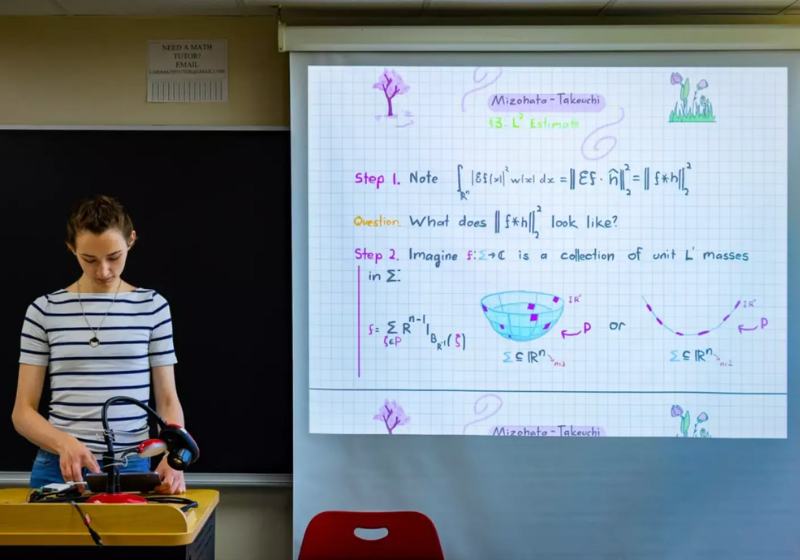 NEED A MATH
TUTOR?
EMAIL
Mizohata-Takeuchi
§3. L² Estimate
Step 1. Note ∫_{ℝⁿ} |Ɛf(x)|² w(x) dx = ‖Ɛf · ĥ‖₂² = ‖f*h‖₂²
Question. What does ‖f*h‖₂² look like?
Step 2. Imagine f:Σ→ℂ is a collection of unit L¹ masses
in Σ.
f = Σ_{ζ∈P} R^{n-1} 1_{B_{R⁻¹}(ζ)}
P or P
Σ ⊆ ℝⁿ n=3
Σ ⊆ ℝⁿ n=2
Mizohata-Takeuchi